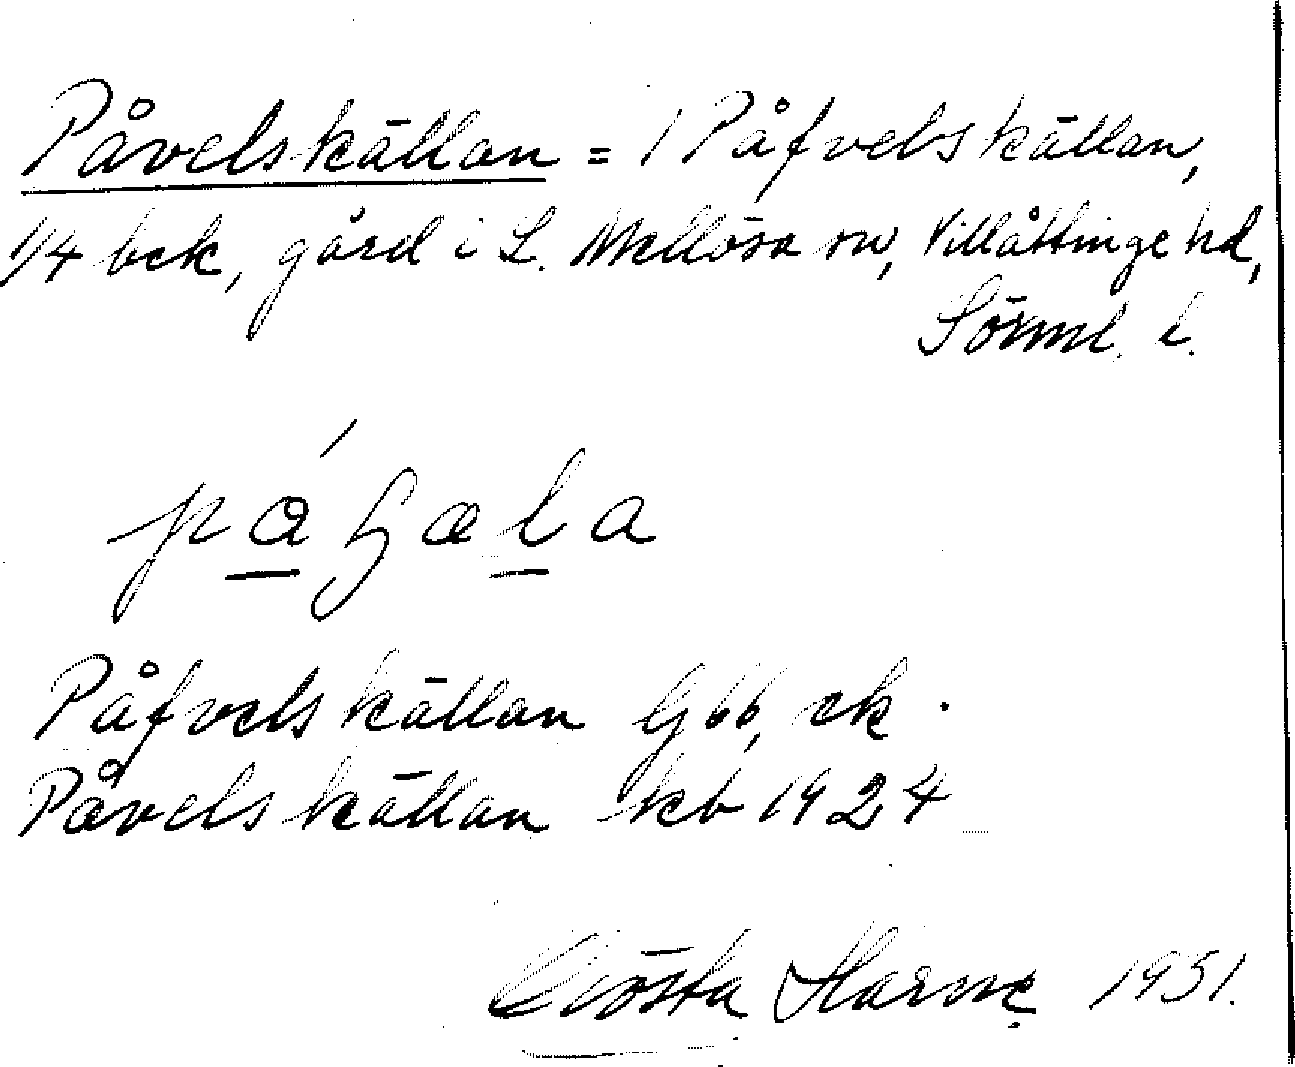 Påvelskällan = 1 Påfvelskällan,
1/4 bek, gård i L. Mellösa sn, Villåttinge hd,
Sörml. l.
Påfvelskällan Gbb, ek.
Påvelskällan kb 1924
Gösta Harne 1951.